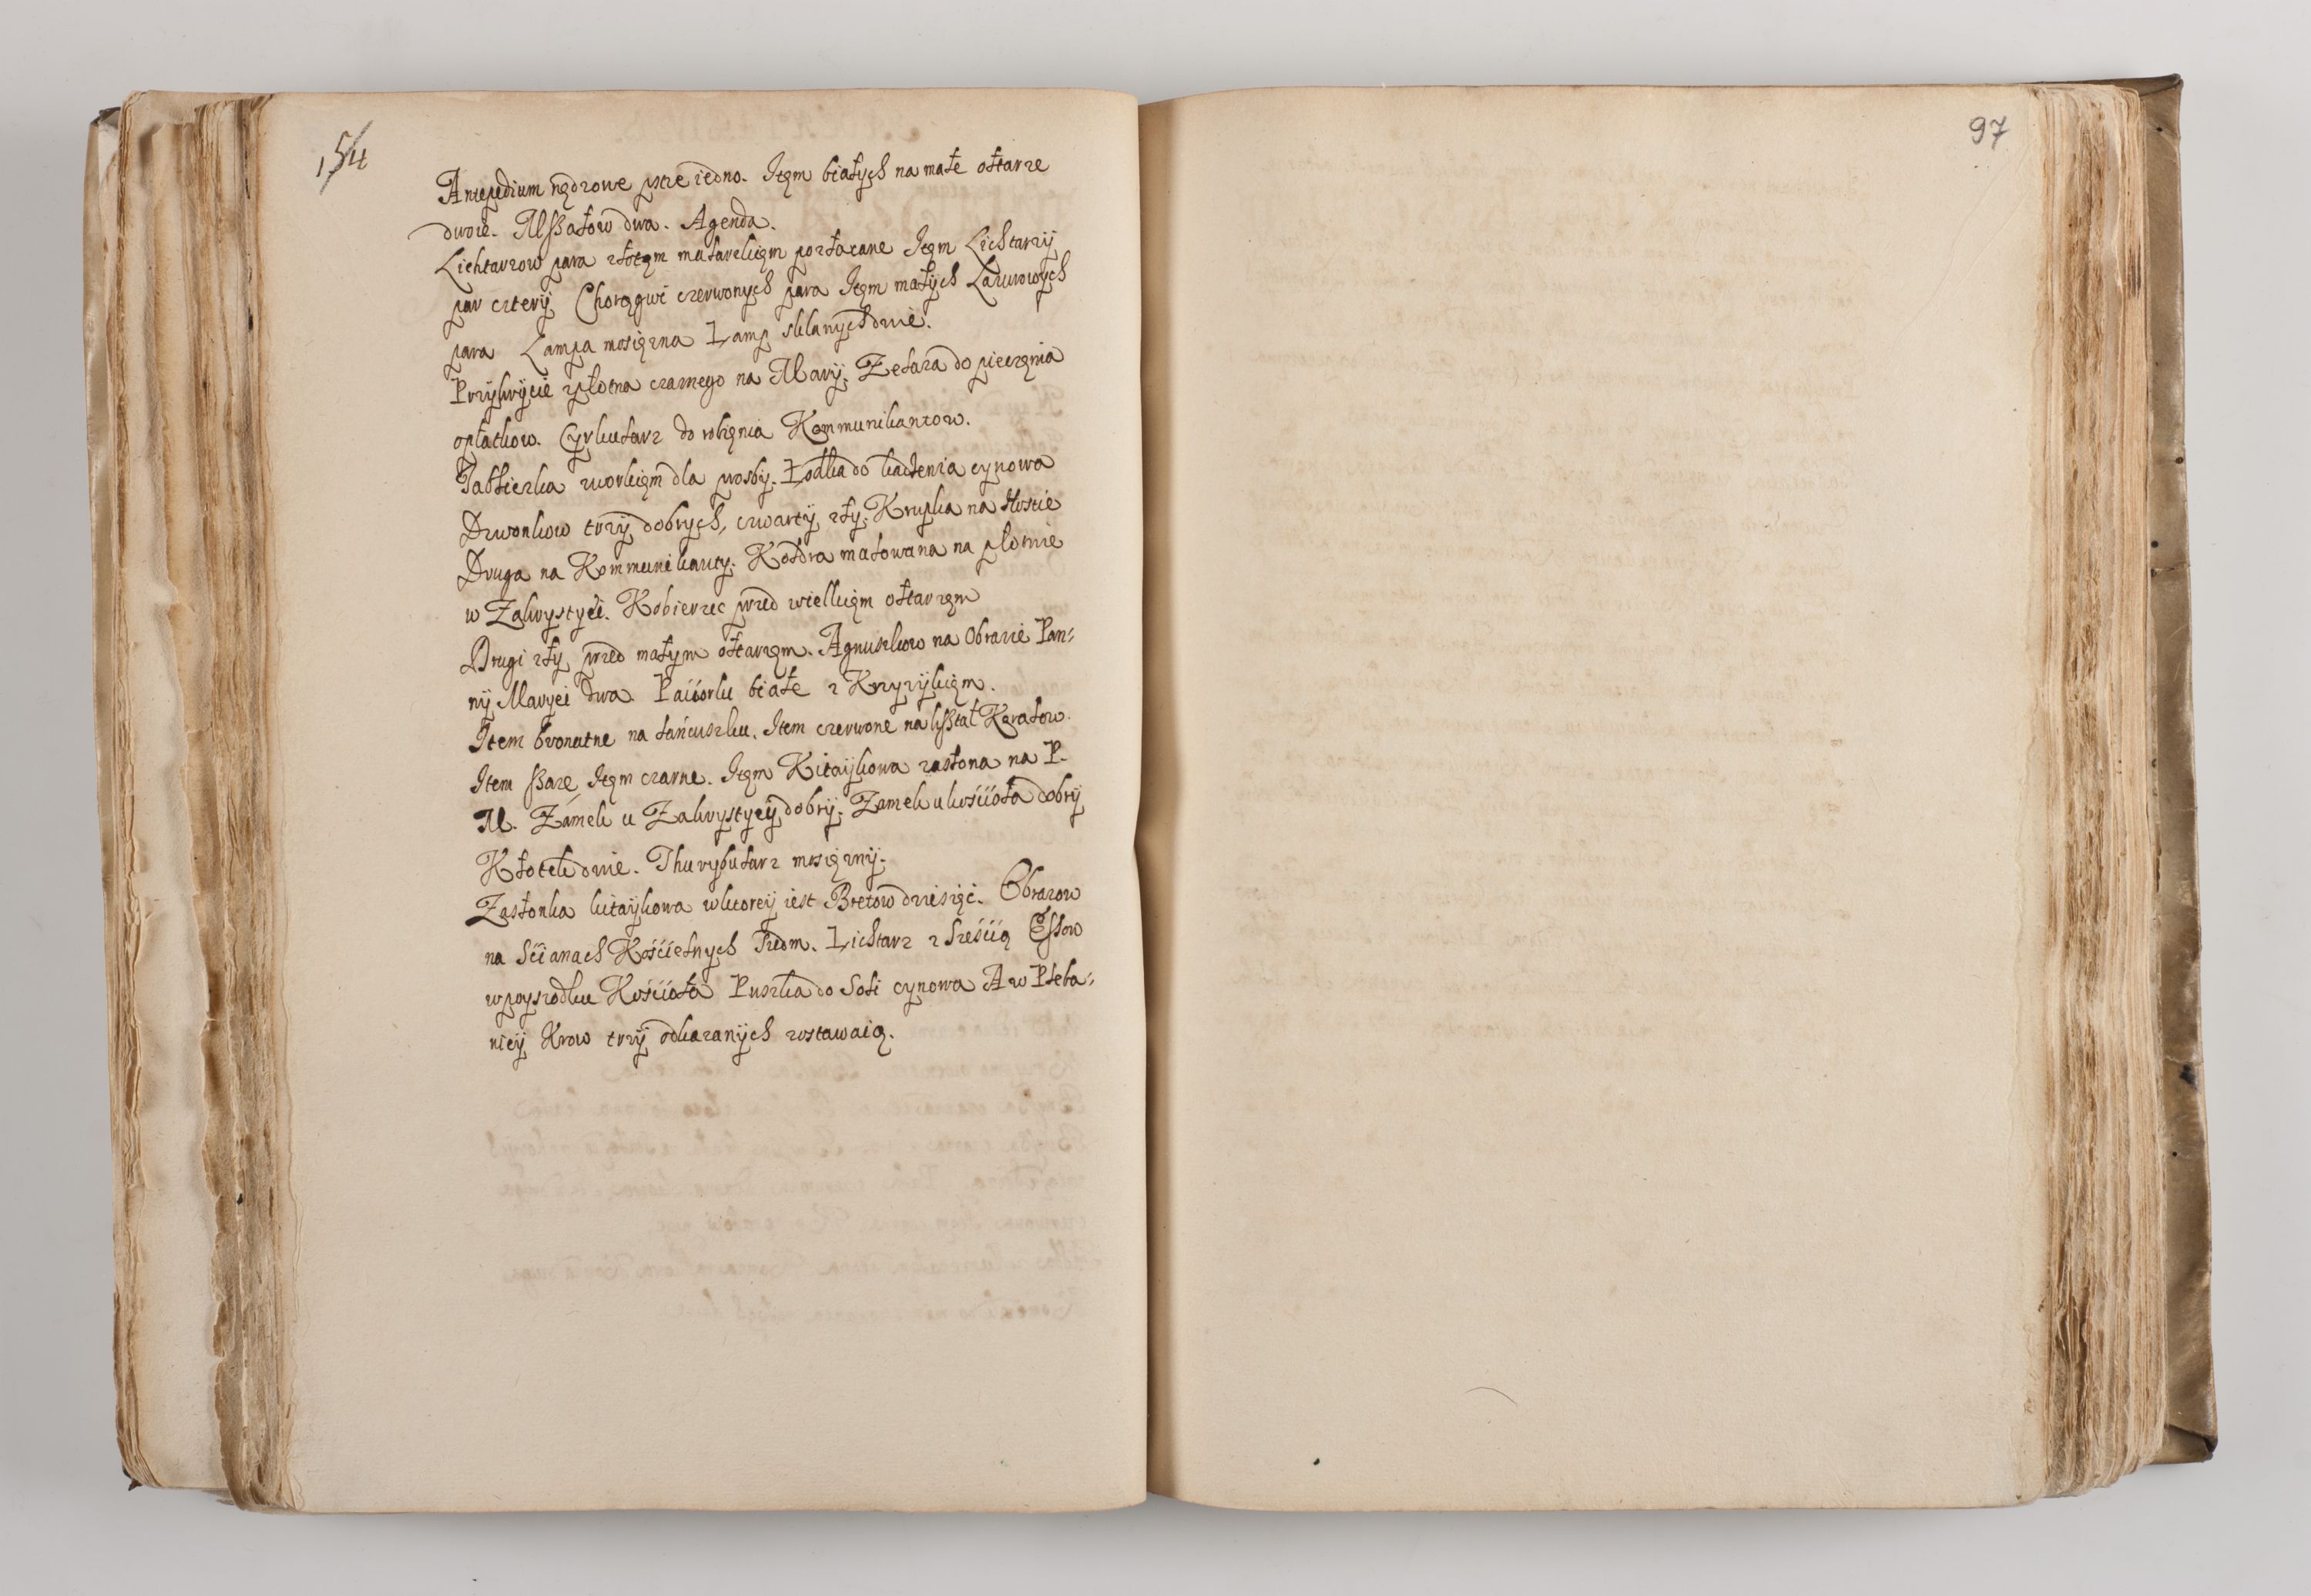 154
97
Antepedium nędzowe pstre iedno. Itęm białych na małe ołtarze
dwoie. Mſſałow dwa. Agenda.
Lichtarzow para złotęm malarskięm pozłacane Itęm Lichtarzÿ
par czterÿ Chorągwi czerwonych para Itęm małÿch Lazurowÿch
para Lampa mosięzna Lamp sklanÿch dwie.
Przÿkrÿcie z płotna czarnego na Marÿ. Zelaza do pieczęnia
opłatkow. Cyrkularz do robięnia Kommunikantow.
Tabliczka zworkięm dla prosbÿ. Łodka do kadzenia cynowa
Dzwonkow trzÿ dobrych, czwartÿ złÿ. Krupka na Hostie
Druga na Kommunikanty. Kołdra malowana na płotnie
w Zakrystyei. Kobierzec przed wielkięm ołtarzęm
Drugi złÿ przed małym ołtarzęm. Agnuszkow na Obrazie Pan-
nÿ Maryei dwa. Paciorki białe z Krzyzÿkięm.
Item brunatne na łańcuszku. Item czerwone na kſztałt Karalow.
Item ſzare Itęm czarne. Itęm Kitaÿkowa zasłona na P.
M. Zámek u Zakrystyeÿ dobrÿ. Zamek u kościoła dobrÿ
Kłotek dwie. Thurybularz mosięznÿ.
Zasłonka kitaÿkowa w ktoreÿ iest Bretow dziesięć. Obrazow
na Scianach Kościelnych siedm. Lichtarz z Sześcią Eſſow
w poyszodku Kościoła Puszka do Soli cynowa A w Pleba-
nieÿ Krow trzÿ odkazanÿch zostawaią.